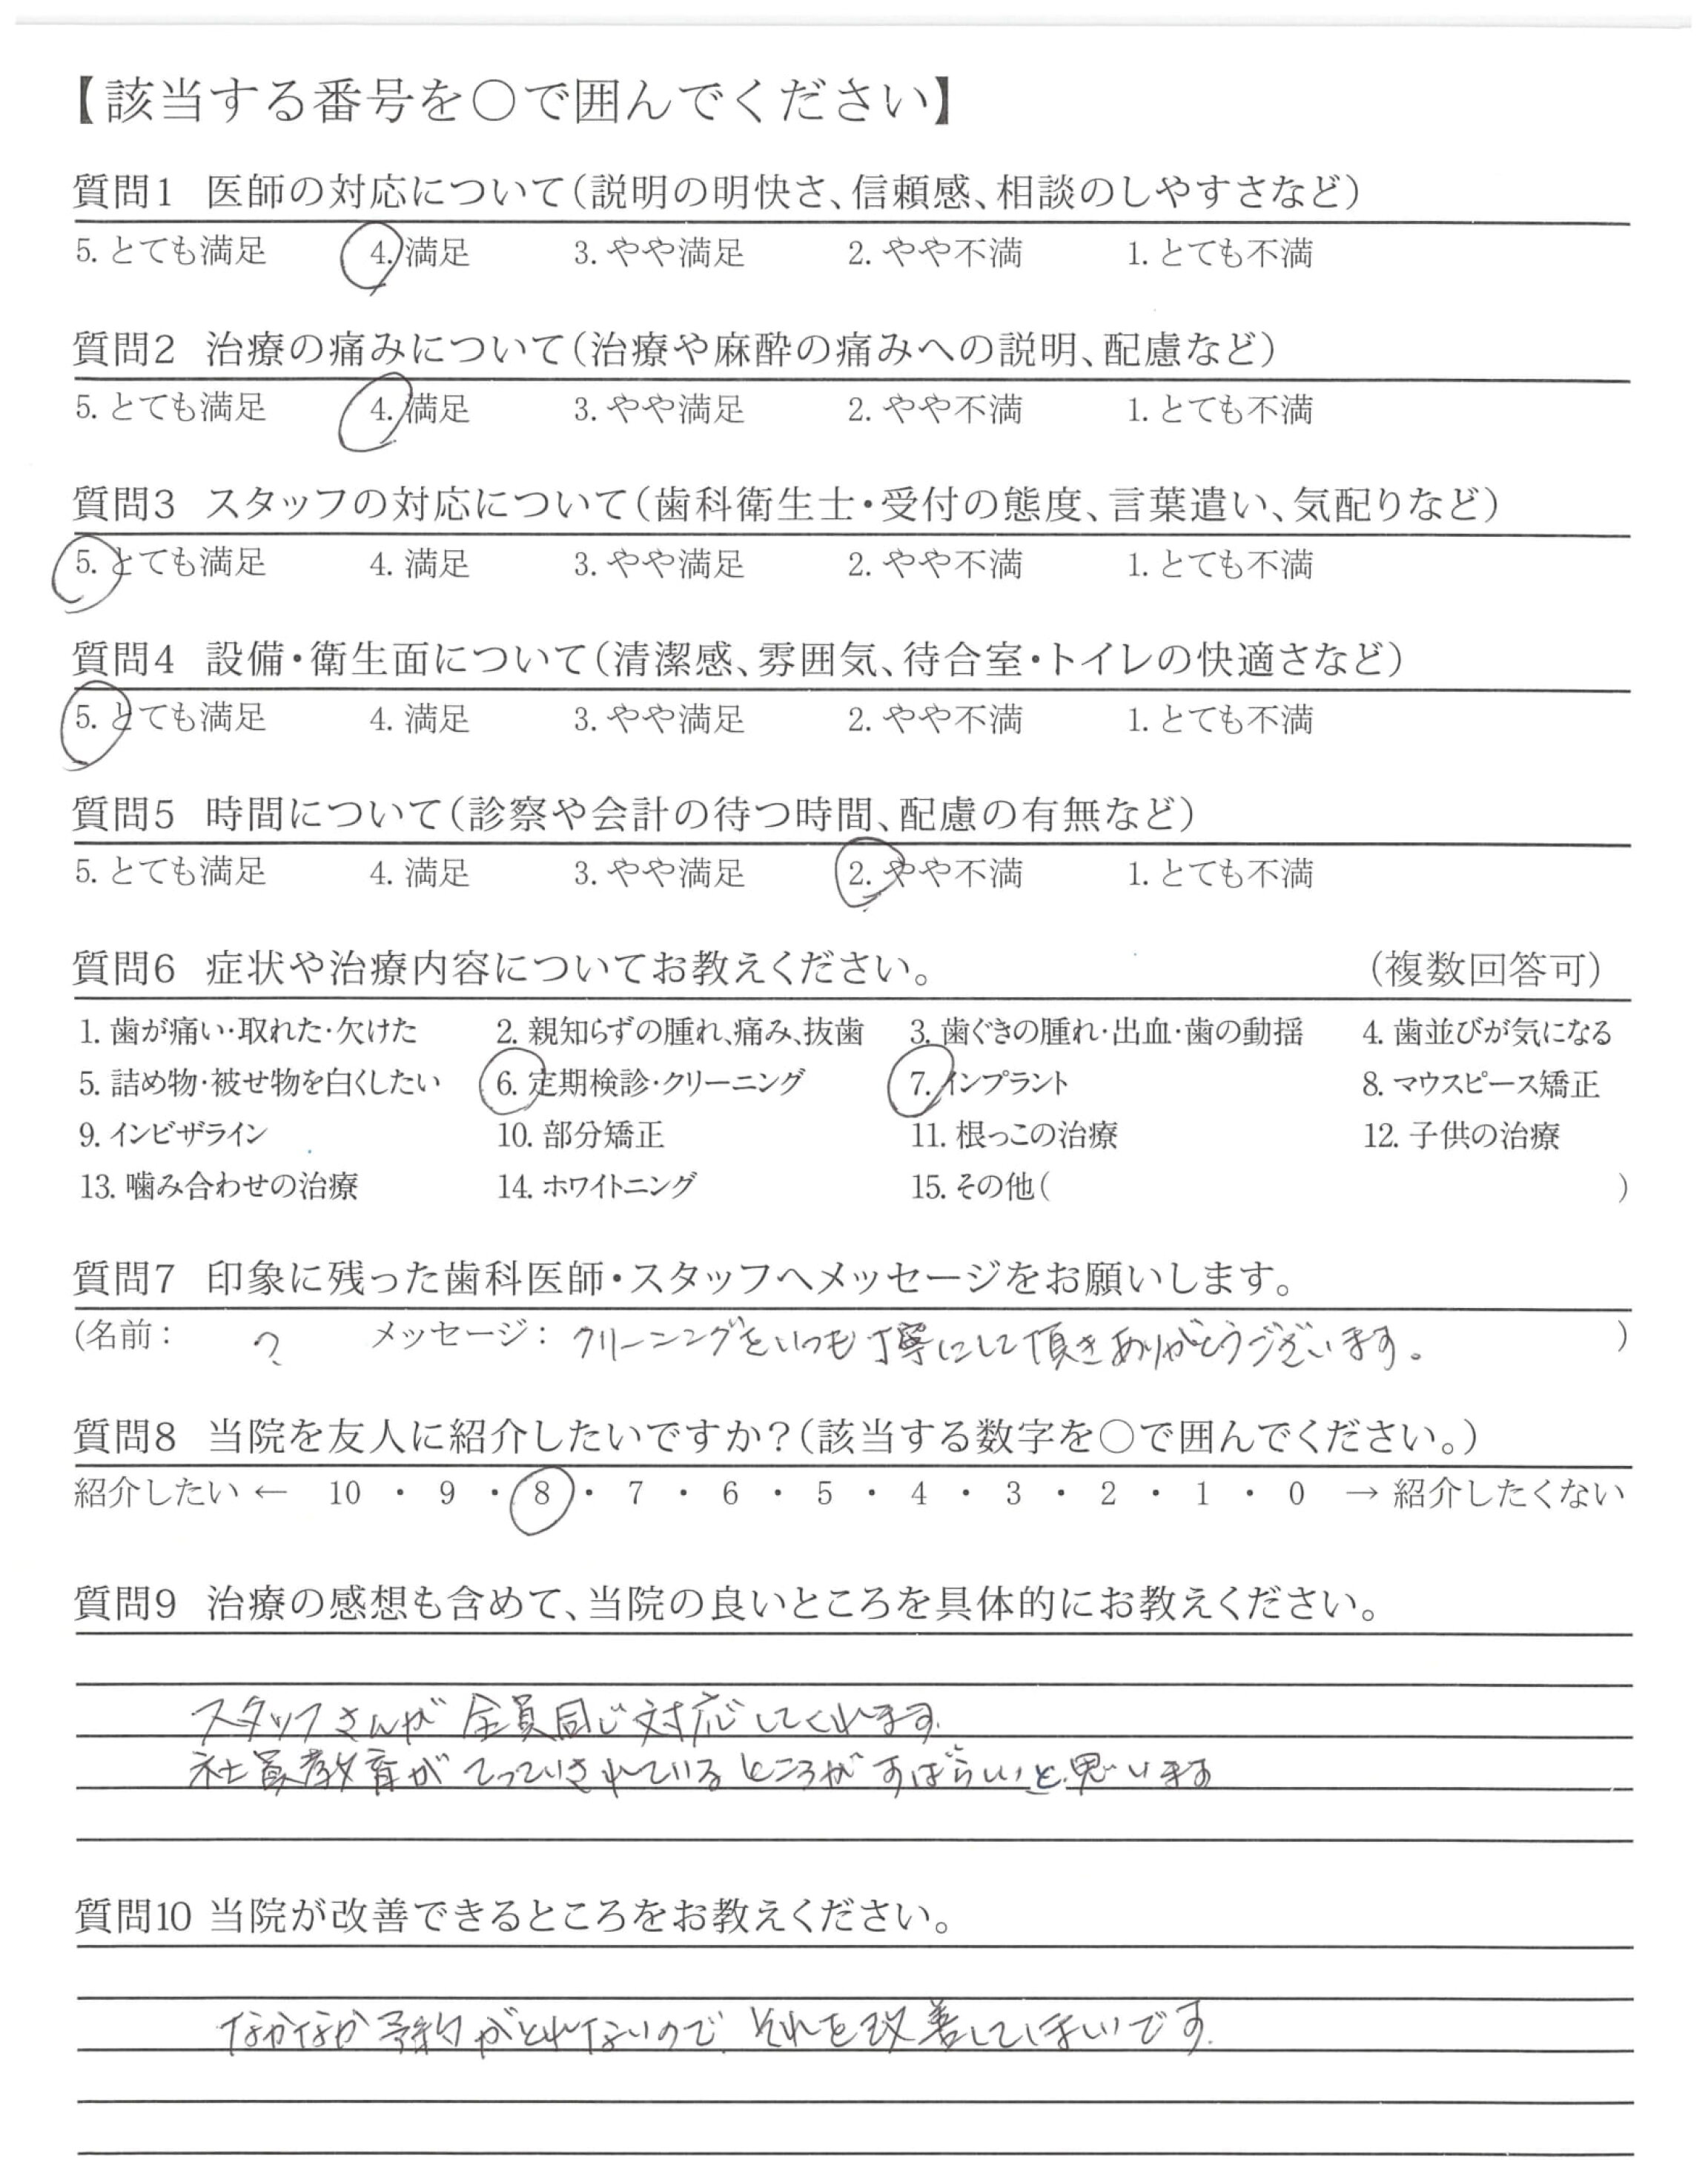 【該当する番号を○で囲んでください】
質問1 医師の対応について(説明の明快さ、信頼感、相談のしやすさなど)
5. とても満足 4. 満足 3. やや満足 2. やや不満 1. とても不満
質問2 治療の痛みについて(治療や麻酔の痛みへの説明、配慮など)
5. とても満足 4. 満足 3. やや満足 2. やや不満 1. とても不満
質問3 スタッフの対応について(歯科衛生士・受付の態度、言葉遣い、気配りなど)
5. とても満足 4. 満足 3. やや満足 2. やや不満 1. とても不満
質問4 設備・衛生面について(清潔感、雰囲気、待合室・トイレの快適さなど)
5. とても満足 4. 満足 3. やや満足 2. やや不満 1. とても不満
質問5 時間について(診察や会計の待つ時間、配慮の有無など)
5. とても満足 4. 満足 3. やや満足 2. やや不満 1. とても不満
質問6 症状や治療内容についてお教えください。 (複数回答可)
1. 歯が痛い・取れた・欠けた 2. 親知らずの腫れ、痛み、抜歯 3. 歯ぐきの腫れ・出血・歯の動揺 4. 歯並びが気になる
5. 詰め物・被せ物を白くしたい 6. 定期検診・クリーニング 7. インプラント 8. マウスピース矯正
9. インビザライン 10. 部分矯正 11. 根っこの治療 12. 子供の治療
13. 噛み合わせの治療 14. ホワイトニング 15. その他( )
質問7 印象に残った歯科医師・スタッフへメッセージをお願いします。
(名前: ? メッセージ: クリーニングをいつも丁寧にして頂きありがとうございます。 )
質問8 当院を友人に紹介したいですか?(該当する数字を○で囲んでください。)
紹介したい ← 10 ・ 9 ・ 8 ・ 7 ・ 6 ・ 5 ・ 4 ・ 3 ・ 2 ・ 1 ・ 0 → 紹介したくない
質問9 治療の感想も含めて、当院の良いところを具体的にお教えください。
スタッフさんが 全員同じ対応してくれます.
社員教育がてっていされているところがすばらしいと思います
質問10 当院が改善できるところをお教えください。
なかなか予約がとれないので、それを改善してほしいです.